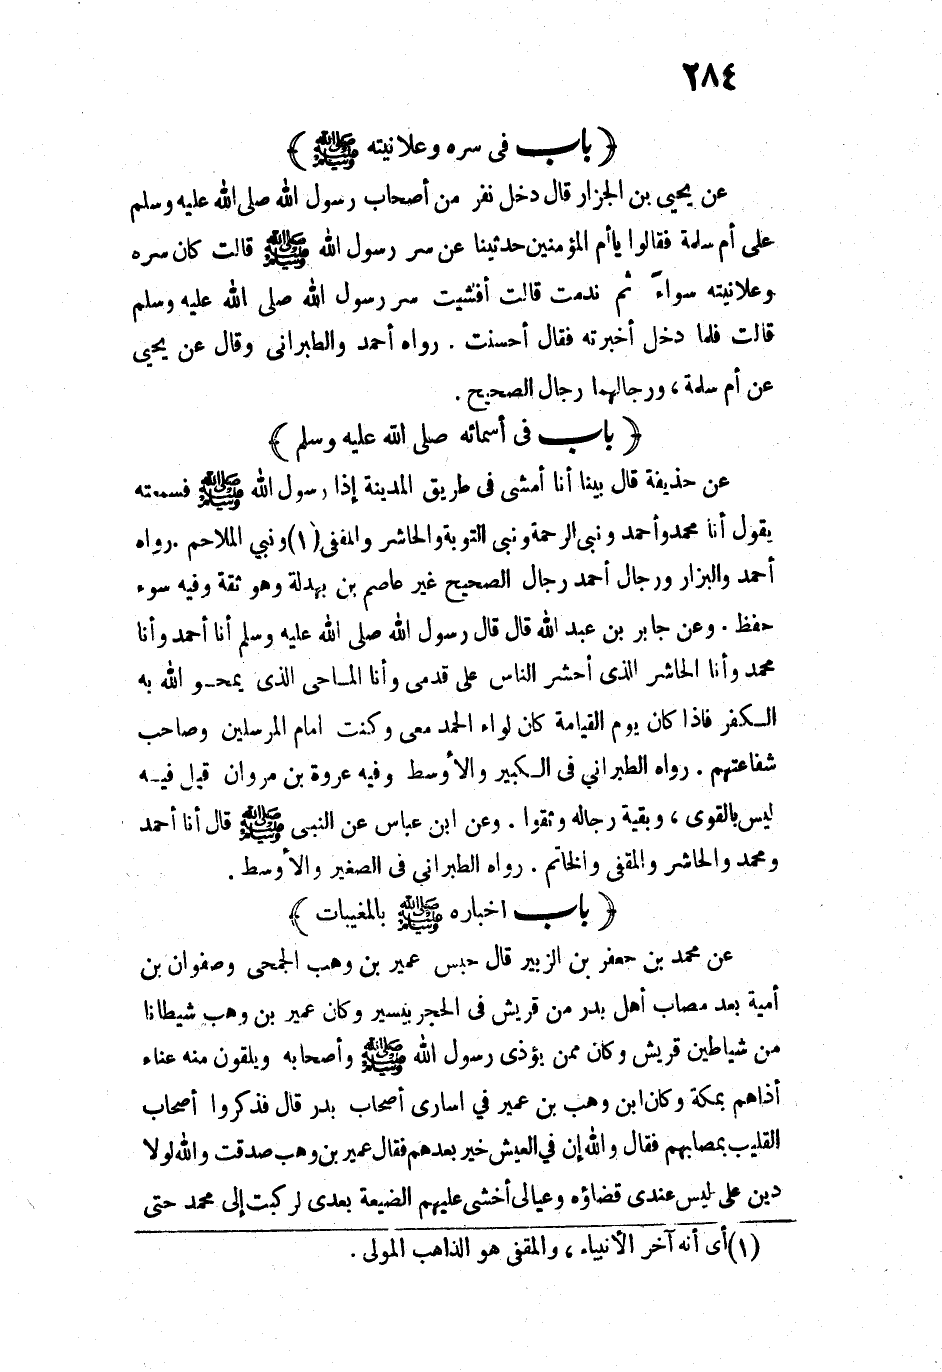 ٢٨٤
﴿ باب فى سره وعلانيته ﷺ ﴾
عن يحيى بن الجزار قال دخل نفر من أصحاب رسول الله صلى الله عليه وسلم
على أم سلمة فقالوا ياأم المؤمنين حدثينا عن سر رسول الله ﷺ قالت كان سره
وعلانيته سواء ثم ندمت قالت أفشيت سر رسول الله صلى الله عليه وسلم
قالت فلما دخل أخبرته فقال أحسنت . رواه أحمد والطبرانى وقال عن يحيى
عن أم سلمة ، ورجالهما رجال الصحيح .
﴿ باب فى أسمائه صلى الله عليه وسلم ﴾
عن حذيفة قال بينا أنا أمشى فى طريق المدينة إذا رسول الله ﷺ فسمعته
يقول أنا محمد وأحمد ونبى الرحمة ونبى التوبة والحاشر والمقفى (١) ونبي الملاحم . رواه
أحمد والبزار ورجال أحمد رجال الصحيح غير عاصم بن بهدلة وهو ثقة وفيه سوء
حفظ . وعن جابر بن عبد الله قال قال رسول الله صلى الله عليه وسلم أنا أحمد وأنا
محمد وأنا الحاشر الذى أحشر الناس على قدمى وأنا المـاحى الذى يمحـو الله به
الـكفر فاذا كان يوم القيامة كان لواء الحمد معى وكنت امام المرسلين وصاحب
شفاعتهم . رواه الطبراني فى الـكبير والأوسط وفيه عروة بن مروان قيل فيـه
ليس بالقوى ، وبقية رجاله وثقوا . وعن ابن عباس عن النبى ﷺ قال أنا أحمد
ومحمد والحاشر والمقفى والخاتم . رواه الطبراني فى الصغير والأوسط .
﴿ باب اخباره ﷺ بالمغيبات ﴾
عن محمد بن جعفر بن الزبير قال جلس عمير بن وهب الجمحى وصفوان بن
أمية بعد مصاب أهل بدر من قريش فى الحجر بيسير وكان عمير بن وهب شيطانا
من شياطين قريش وكان ممن يؤذى رسول الله ﷺ وأصحابه ويلقون منه عناء
أذاهم بمكة وكان ابن وهب بن عمير في اسارى أصحاب بدر قال فذكروا أصحاب
القليب بمصابهم فقال والله إن في العيش خير بعدهم فقال عمير بن وهب صدقت والله لولا
دين على ليس عندى قضاؤه وعيالى أخشى عليهم الضيعة بعدى لركبت إلى محمد حتى
(١) أى أنه آخر الأنبياء ، والمقفى هو الذاهب المولى .